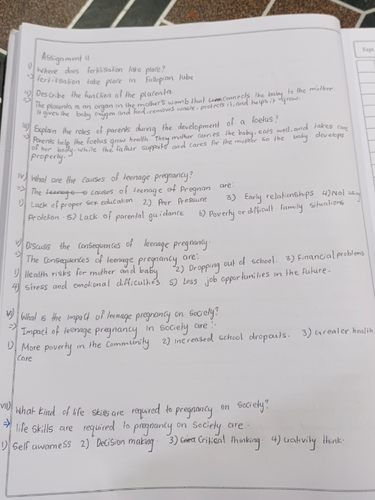 Assignment 11
i) Where does fertilisation take place?
=> fertilisation take place in Fallopian tube
ii) Describe the function of the placenta
=> The placenta is an organ in the mother's womb that connects the baby to the mother.
It gives the baby oxygen and food, removes waste, protects it, and helps it grow.
iii) Explain the roles of parents during the development of a foetus?
=> Parents help the foetus grow health. They mother carries the baby, eats well, and takes care
of her body, while the father supports and cares for the mother so the baby develops
properly.
iv) What are the causes of teenage pregnancy?
=> The causes of teenage of Pregnan are:
1) Lack of proper sex education 2) Peer Pressure 3) Early relationships 4) Not using
5) Lack of parental guidance 6) Poverty or difficult family situations
v) Discuss the consequences of teenage pregnancy.
=> The consequences of teenage pregnancy are:
1) Health risks for mother and baby 2) Dropping out of school. 3) Financial problems
4) stress and emotional difficulties 5) Less job opportunities in the future.
vi) What is the impact of teenage pregnancy on Society?
=> Impact of teenage pregnancy in Society are:-
1) More poverty in the community 2) increased school dropouts. 3) Greater health
care
vii) What kind of life skills are required to pregnancy on Society?
=> life skills are required to pregnancy on Society are:-
1) Self awarness 2) Decision making 3) Critical thinking 4)